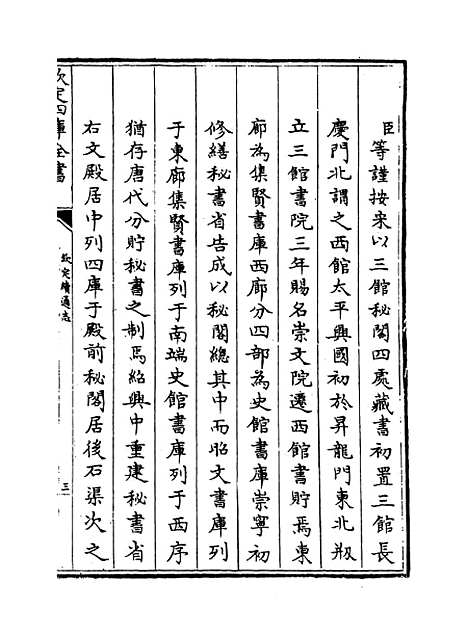 臣等謹按宋以三館秘閣四處藏書初置三館長
慶門北謂之西館太平興國初於昇龍門東北刱
立三館書院三年賜名崇文院遷西館書貯焉東
廊為集賢書庫西廊分四部為史館書庫崇寧初
修繕秘書省告成以秘閣總其中而昭文書庫列
于東廊集賢書庫列于南端史館書庫列于西序
猶存唐代分貯秘書之制焉紹興中重建秘書省
右文殿居中列四庫于殿前秘閣居後石渠次之
欽定四庫全書
欽定續通志
三